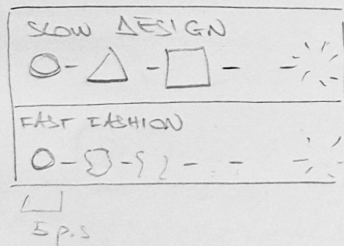 SLOW DESIGN
FAST FASHION
5 p.s